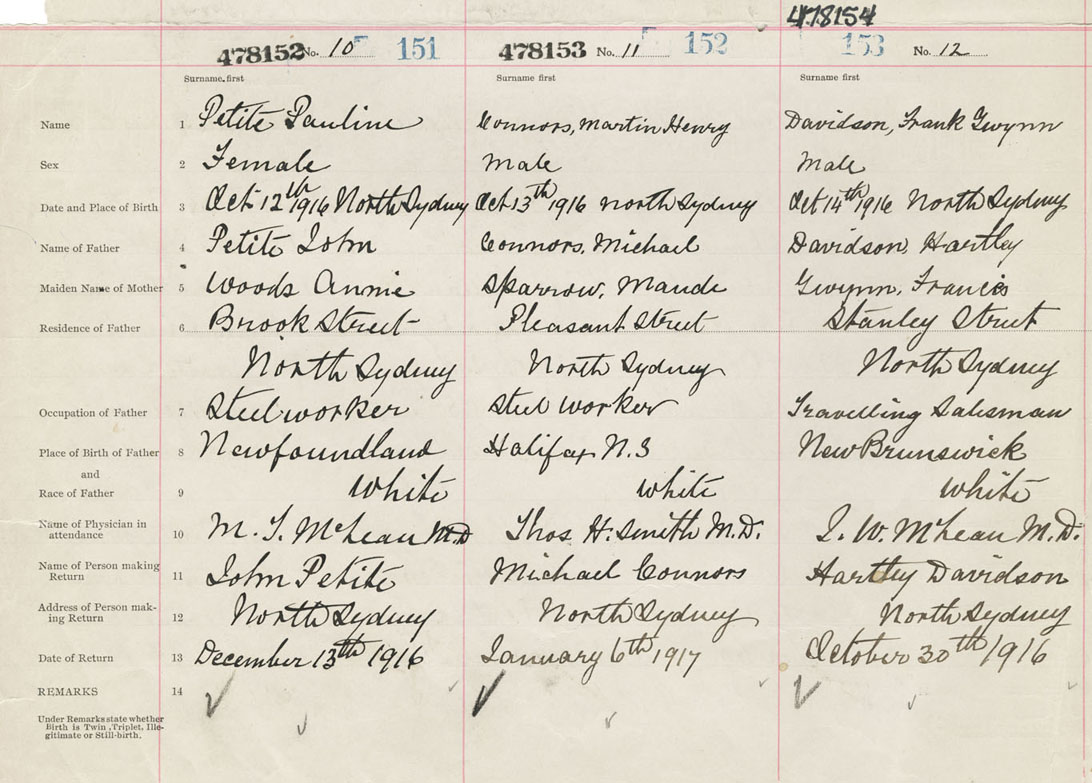 478154
478152 No. 10 151 478153 No. 11 152 153 No. 12
Surname first Surname first Surname first
Name 1 Petite Pauline Connors, Martin Henry Davidson, Frank Gwynn
Sex 2 Female Male Male
Date and Place of Birth 3 Oct 12th 1916 North Sydney Oct 13th 1916 North Sydney Oct 14th 1916 North Sydney
Name of Father 4 Petite John Connors, Michael Davidson, Hartley
Maiden Name of Mother 5 Woods Annie Sparrow, Maude Gwynn, Francis
Residence of Father 6 Brook Street Pleasant Street Stanley Street
North Sydney North Sydney North Sydney
Occupation of Father 7 Steelworker Steel worker Travelling Salesman
Place of Birth of Father 8 Newfoundland Halifax N.S New Brunswick
and
Race of Father 9 White White White
Name of Physician in
attendance 10 McLean M.D Thos H. Smith M.D. W. McLean M.D.
Name of Person making
Return 11 John Petite Michael Connors Hartley Davidson
Address of Person mak-
ing Return 12 North Sydney North Sydney North Sydney
Date of Return 13 December 13th 1916 January 6th 1917 October 30th 1916
REMARKS 14
Under Remarks state whether
Birth is Twin, Triplet, Ille-
gitimate or Still-birth.